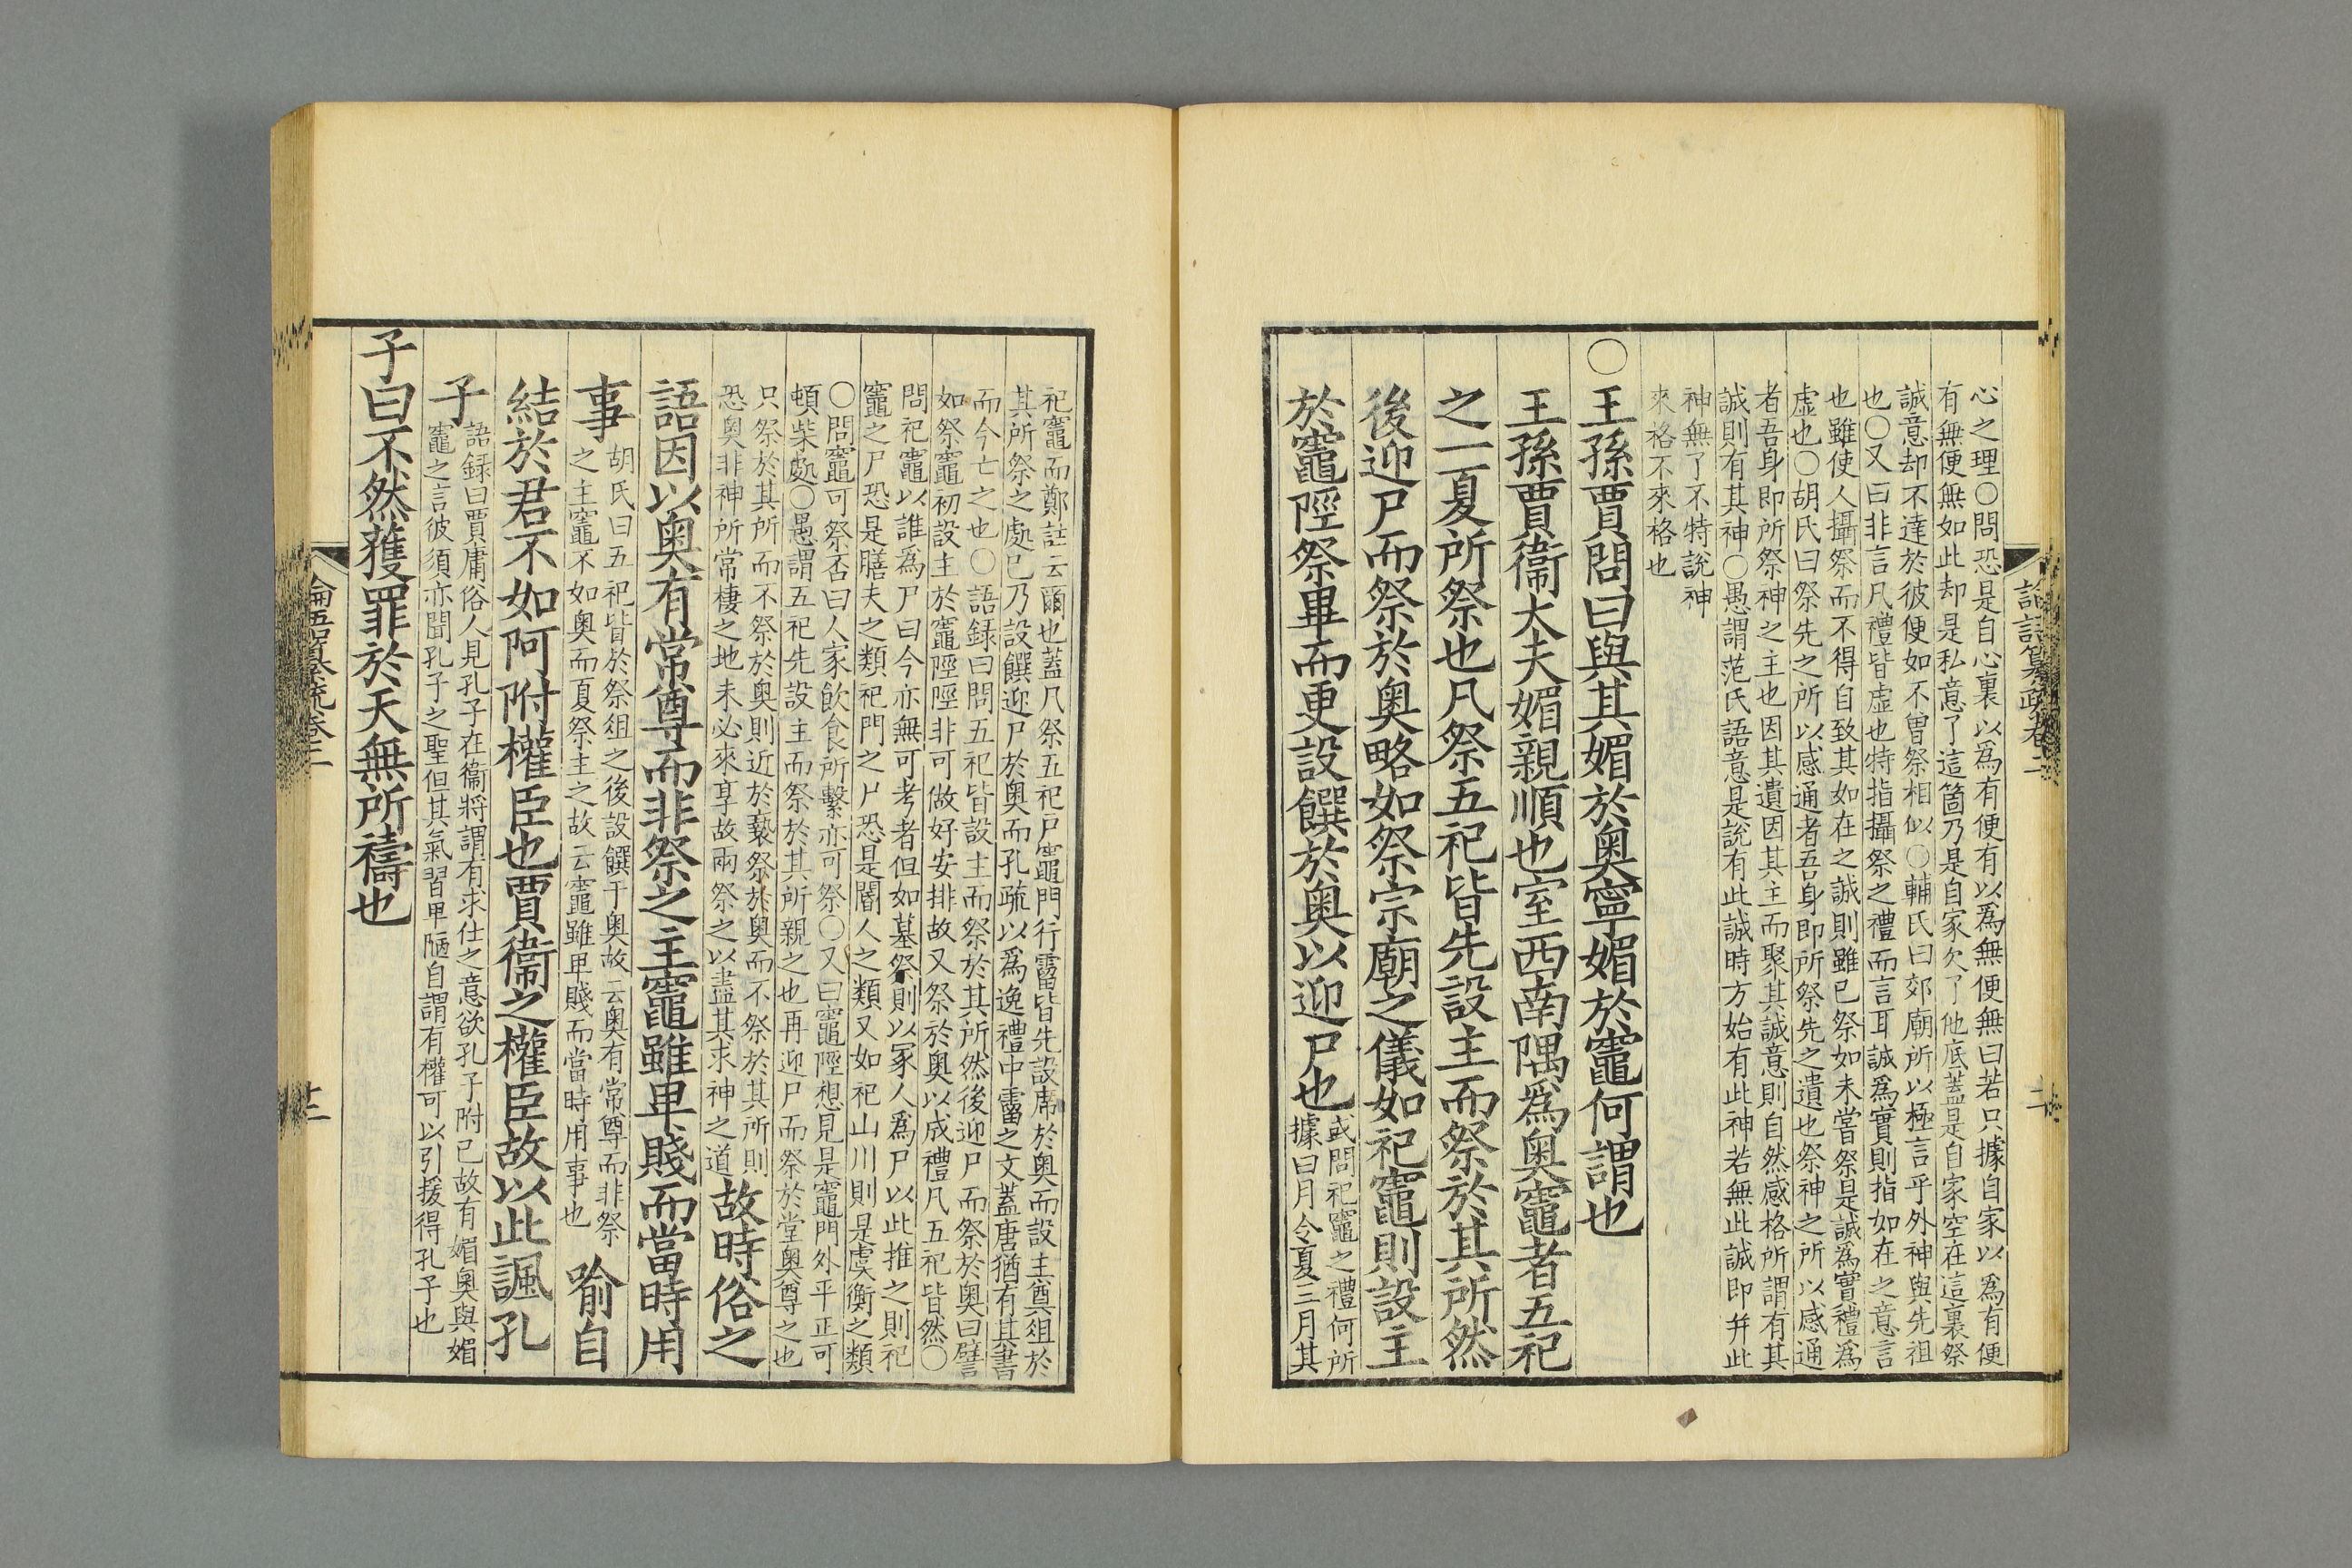 心之理○問恐是自心裏以爲有便有以爲無便無曰若只據自家以爲有便
有無便無如此却是私意了這箇乃是自家欠了他底蓋是自家空在這裏祭
誠意却不達於彼便如不曾祭相似○輔氏曰郊廟所以極言乎外神與先祖
也○又曰非言凡禮皆虛也特指攝祭之禮而言耳誠爲實則指如在之意言
也雖使人攝祭而不得自致其如在之誠則雖已祭如未嘗祭是誠爲實禮爲
虛也○胡氏曰祭先之所以感通者吾身即所祭先之遺也祭神之所以感通
者吾身即所祭神之主也因其遺因其主而聚其誠意則自然感格所謂有其
誠則有其神○愚謂范氏語意是說有此誠時方始有此神若無此誠即并此
神無了不特說神
來格不來格也
○王孫賈問曰與其媚於奥寧媚於竈何謂也
王孫賈衞大夫媚親順也室西南隅爲奥竈者五祀
之一夏所祭也凡祭五祀皆先設主而祭於其所然
後迎尸而祭於奥略如祭宗廟之儀如祀竈則設主
於竈陘祭畢而更設饌於奥以迎尸也
或問祀竈之禮何所
據曰月令夏三月其
祀竈而鄭註云爾也蓋凡祭五祀户竈門行霤皆先設席於奥而設主奠俎於
其所祭之處已乃設饌迎尸於奥而孔疏以爲逸禮中霤之文蓋唐猶有其書
而今亡之也○語録曰問五祀皆設主而祭於其所然後迎尸而祭於奥曰譬
如祭竈初設主於竈陘陘非可做好安排故又祭於奥以成禮凡五祀皆然○
問祀竈以誰爲尸曰今亦無可考者但如墓祭則以冢人爲尸以此推之則祀
竈之尸恐是膳夫之類祀門之尸恐是閽人之類又如祀山川則是虞衡之類
○問竈可祭否曰人家飲食所繫亦可祭○又曰竈陘想見是竈門外平正可
頓柴處○愚謂五祀先設主而祭於其所親之也再迎尸而祭於堂奥尊之也
只祭於其所而不祭於奥則近於褻祭於奥而不祭於其所則
恐奥非神所常棲之地未必來享故兩祭之以盡其求神之道
故時俗之
語因以奥有常尊而非祭之主竈雖卑賤而當時用
事
胡氏曰五祀皆於祭俎之後設饌于奥故云奥有常尊而非祭
之主竈不如奥而夏祭主之故云竈雖卑賤而當時用事也
喻自
結於君不如阿附權臣也賈衞之權臣故以此諷孔
子
語録曰賈庸俗人見孔子在衞將謂有求仕之意欲孔子附己故有媚奥與媚
竈之言彼須亦聞孔子之聖但其氣習卑陋自謂有權可以引援得孔子也
子曰不然獲罪於天無所禱也